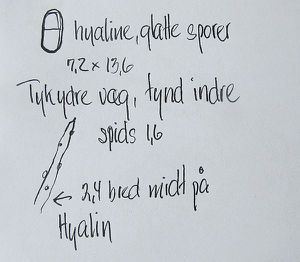 hyaline, glatte sporer
7,2 x 13,6
Tyk ydre væg, tynd indre
spids 1,6
← 2,4 bred midt på
Hyalin